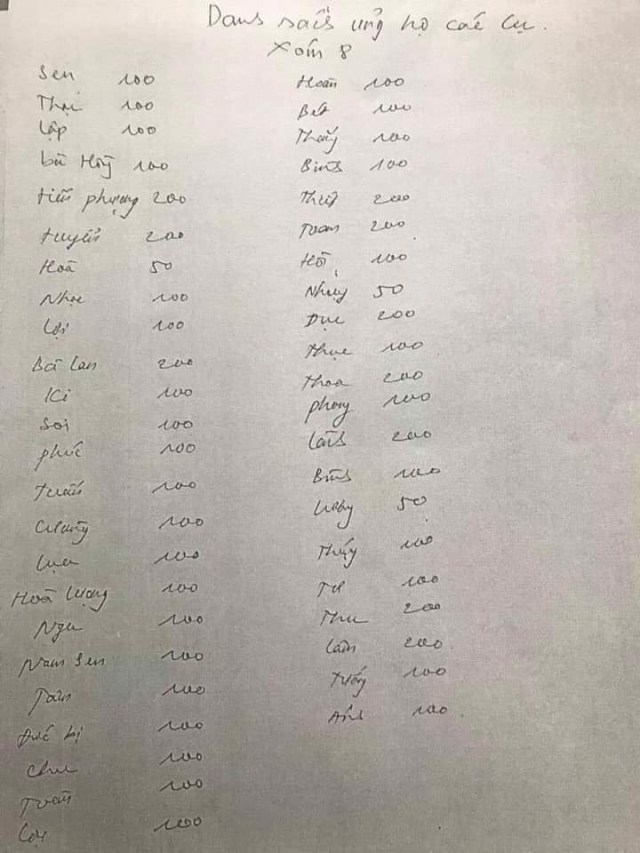 Danh sách ủng hộ các cụ.
Xóm 8
Sen 100
Thại 100
Lập 100
bà Hồng 100
tiến phượng 200
tuyển 200
Hoà 50
Nhạc 100
Lợi 100
Bà Lan 200
Kỉ 100
Sơi 100
phúc 100
tuấn 100
Cương 100
Lụa 100
Hoà Lượng 100
Nga 100
Nam Sen 100
Toàn 100
Đức 100
Chu 100
Tuấn 100
100
Hoàn 100
100
Thắng 100
Bình 100
200
Toan 200
100
Nhung 50
Dục 200
thục 100
thoa 200
phong 100
Lành 200
Bình 100
50
Thúy 100
Tư 100
Thu 200
Lâm 200
100
Ánh 100